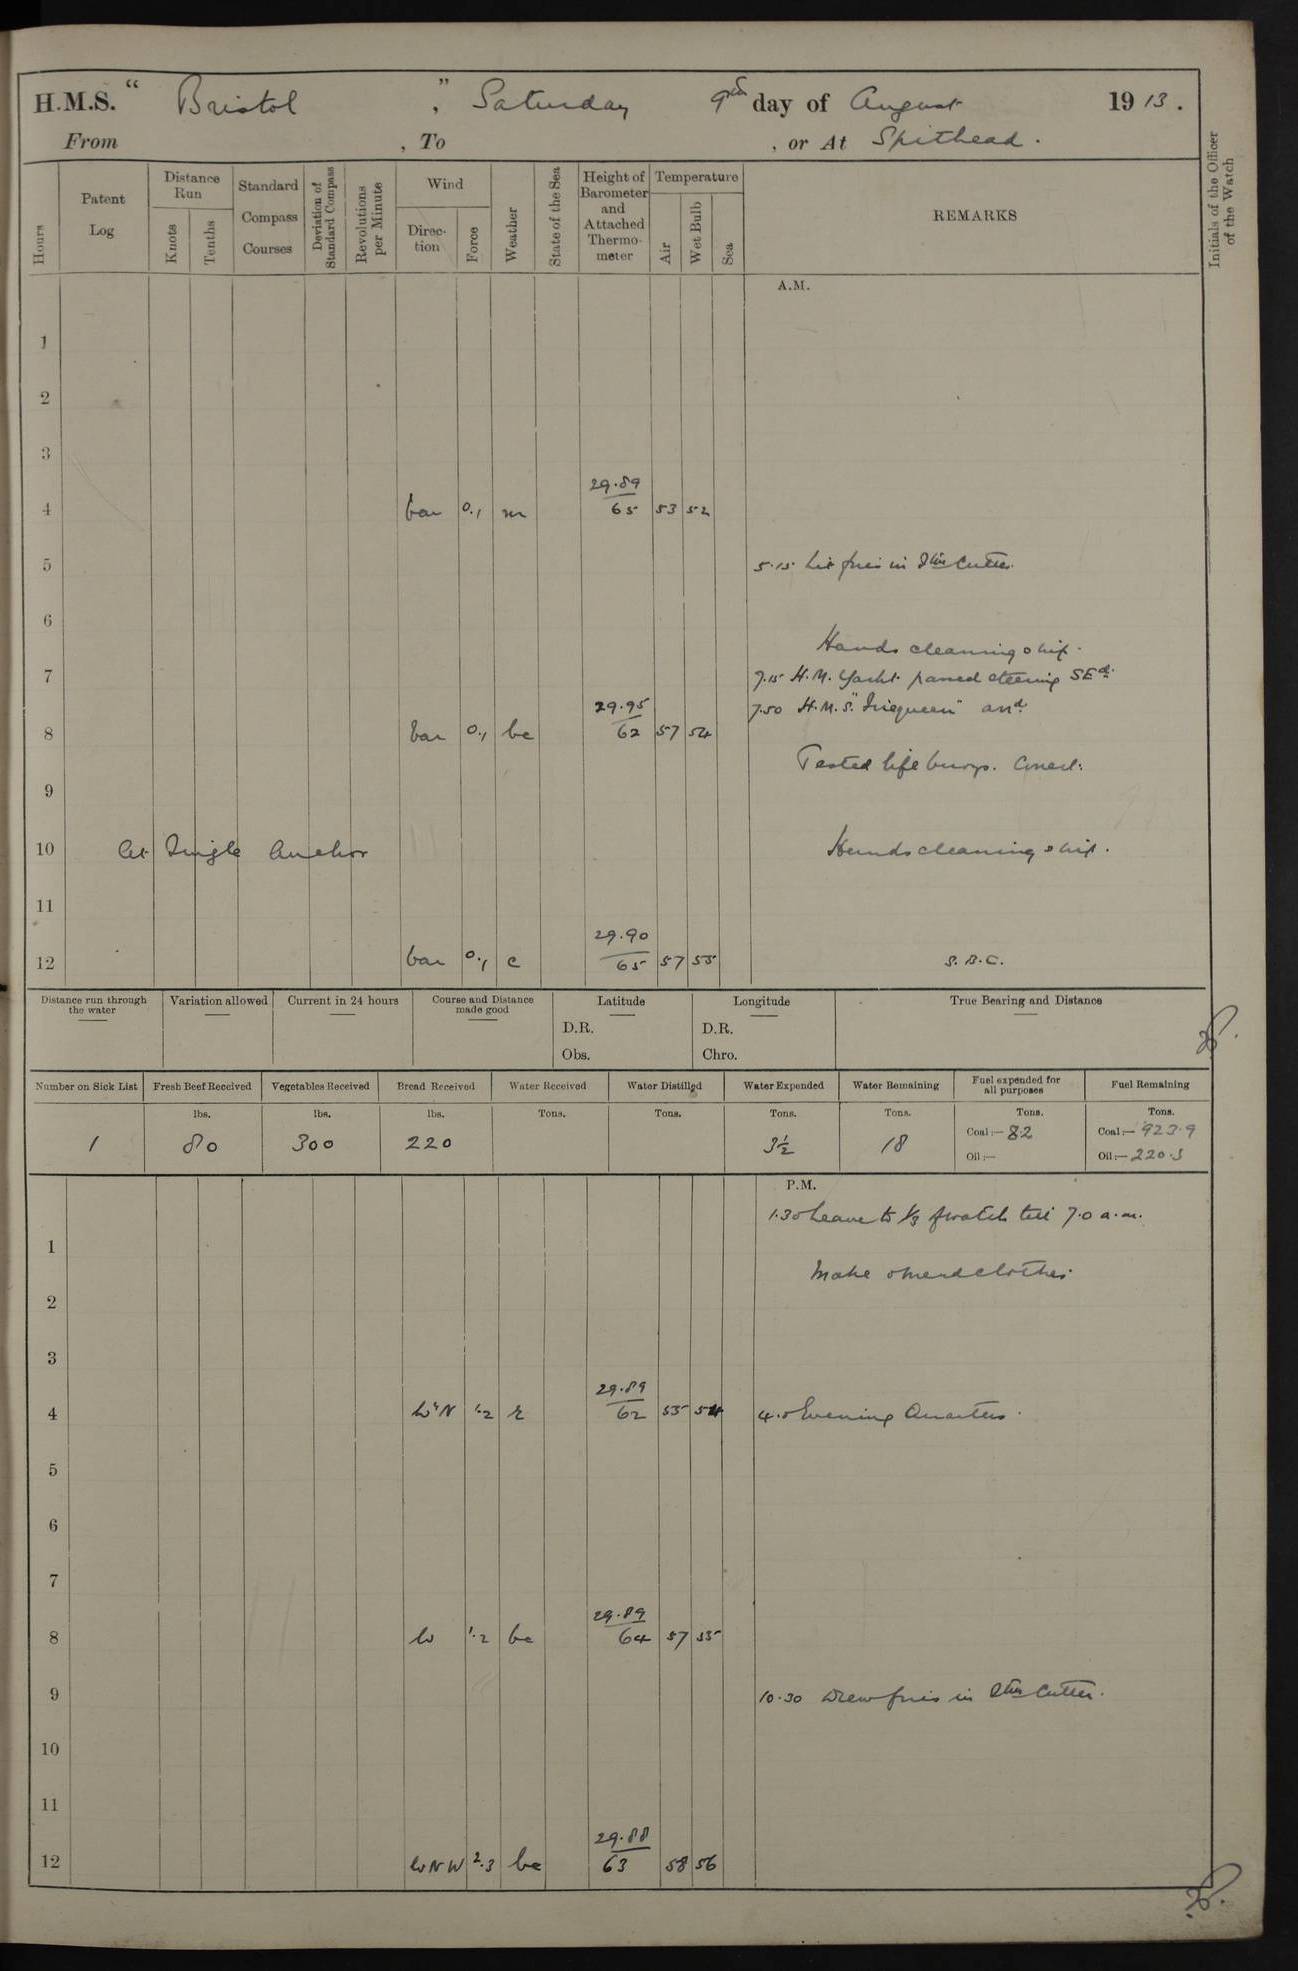 H.M.S. " Bristol ", Saturday 9th day of August 1913.
From , To , or At Spithead.
Hours
Patent Log
Distance Run
Knots
Tenths
Standard Compass Courses
Deviation of Standard Compass
Revolutions per Minute
Wind
Direction
Force
Weather
State of the Sea
Height of Barometer and Attached Thermometer
Temperature
Air
Wet Bulb
Sea
REMARKS
Initials of the Officer of the Watch
A.M.
1
2
3
4 bar 0.1 m 29.89 65 53 52
5 5.15 Lit fires in Stm Cutter.
6
Hands cleaning ship.
7 7.15 H.M. Yacht passed steering SEd.
7.50 H.M.S. "Irequeen" arrd.
8 bar 0.1 bc 29.95 62 57 54
Tested life buoys. Correct.
9
10 At Single Anchor Hands cleaning ship.
11
12 bar 0.1 c 29.90 65 57 55 S.B.C.
Distance run through the water
Variation allowed
Current in 24 hours
Course and Distance made good
Latitude
D.R.
Obs.
Longitude
D.R.
Chro.
True Bearing and Distance
Number on Sick List
Fresh Beef Received
Vegetables Received
Bread Received
Water Received
Water Distilled
Water Expended
Water Remaining
Fuel expended for all purposes
Fuel Remaining
lbs. lbs. lbs. Tons. Tons. Tons. Tons. Tons. Tons.
1 80 300 220 3½ 18 Coal:— 8.2 Coal:— 923.9
Oil:— Oil:— 220.5
P.M.
1.30 Leave to ⅓ of watch till 7.0 a.m.
1
Make & mend clothes.
2
3
4 W'N 1.2 r 29.89 62 55 54 4.0 Evening Quarters.
5
6
7
8 W 1.2 bc 29.89 64 57 55
9 10.30 Drew fires in Stm Cutter.
10
11
12 WNW 2.3 bc 29.88 63 58 56